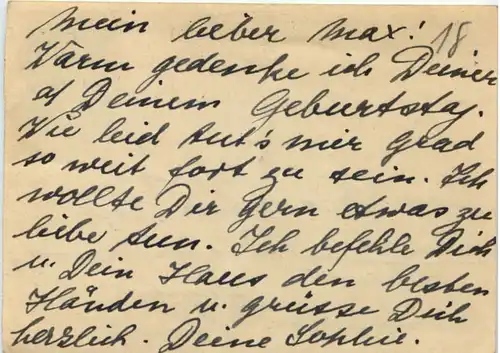 Mein lieber Max! 18
Warm gedenke ich Deiner
a/ Deinem Geburtstag.
Wie leid tut's mir grad
so weit fort zu sein. Ich
wollte Dir gern etwas zu
liebe tun. Ich befehle Dich
u. Dein Haus den besten
Händen u. grüsse Dich
herzlich. Deine Sophie.